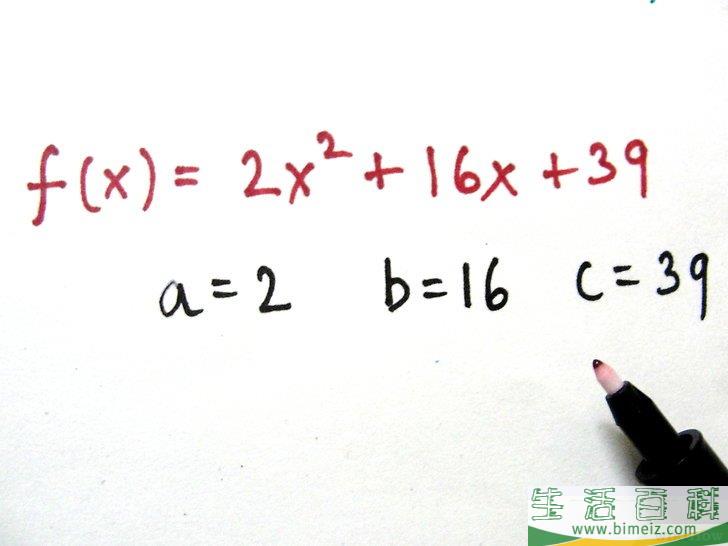 f(x) = 2x² + 16x + 39
a = 2 b = 16 c = 39
生活百科
www.bimeiz.com